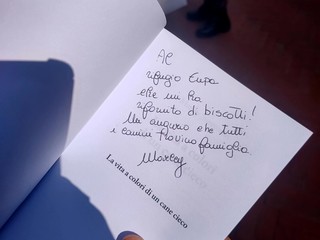 Al
rifugio Enpa
che mi ha
rifornito di biscotti!
Un augurio che tutti
i canini trovino famiglia
La vita a colori di un cane cieco